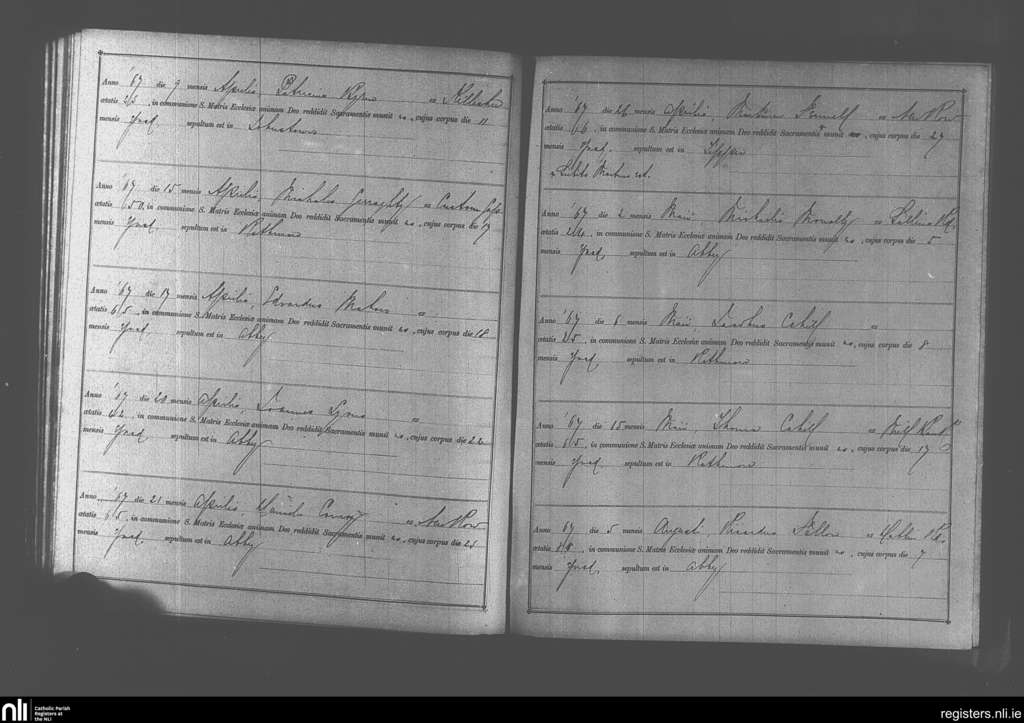 Anno '67 die 9 mensis Aprilis Patricius Ryan ex
ætatis 25, in communione S. Matris Ecclesiæ animam Deo reddidit Sacramentis munit us, cujus corpus die 11
mensis præd. sepultum est in
Anno '67 die 15 mensis Aprilis, Michalis Geraghty ex Custom
ætatis 50, in communione S. Matris Ecclesiæ animam Deo reddidit Sacramentis munit us, cujus corpus die 17
mensis præd. sepultum est in Rathmore
Anno '67 die 17 mensis Aprilis, Edvardus
ætatis 65, in communione S. Matris Ecclesiæ animam Deo reddidit Sacramentis munit us, cujus corpus die 18
mensis præd. sepultum est in Abby
Anno '67 die 20 mensis Aprilis, Joannes Lyons "
ætatis 42, in communione S. Matris Ecclesiæ animam Deo reddidit Sacramentis munit us, cujus corpus die 22
mensis præd. sepultum est in Abby
Anno '67 die 21 mensis Aprilis, ex New Row
ætatis 65, in communione S. Matris Ecclesiæ animam Deo reddidit Sacramentis munit us, cujus corpus die 25
mensis præd. sepultum est in Abby
Anno '67 die 26 mensis Aprilis, ex New Row
ætatis 66, in communione S. Matris Ecclesiæ animam Deo reddidit Sacramentis munit us, cujus corpus die 27
mensis præd. sepultum est in
est.
Anno '67 die 2 mensis Maii ex
ætatis 24, in communione S. Matris Ecclesiæ animam Deo reddidit Sacramentis munit us, cujus corpus die 5
mensis præd. sepultum est in Abby
Anno '67 die 6 mensis Maii Cahill "
ætatis 25, in communione S. Matris Ecclesiæ animam Deo reddidit Sacramentis munit us, cujus corpus die 8
mensis præd. sepultum est in Rathmore
Anno '67 die 15 mensis Maii, Thomas Cahill ex
ætatis 65, in communione S. Matris Ecclesiæ animam Deo reddidit Sacramentis munit us, cujus corpus die 17
mensis præd. sepultum est in Rathmore
Anno 67 die 5 mensis August. ex
ætatis 18, in communione S. Matris Ecclesiæ animam Deo reddidit Sacramentis munit us, cujus corpus die 7
mensis præd. sepultum est in Abby
nli Catholic Parish Registers at the NLI
registers.nli.ie